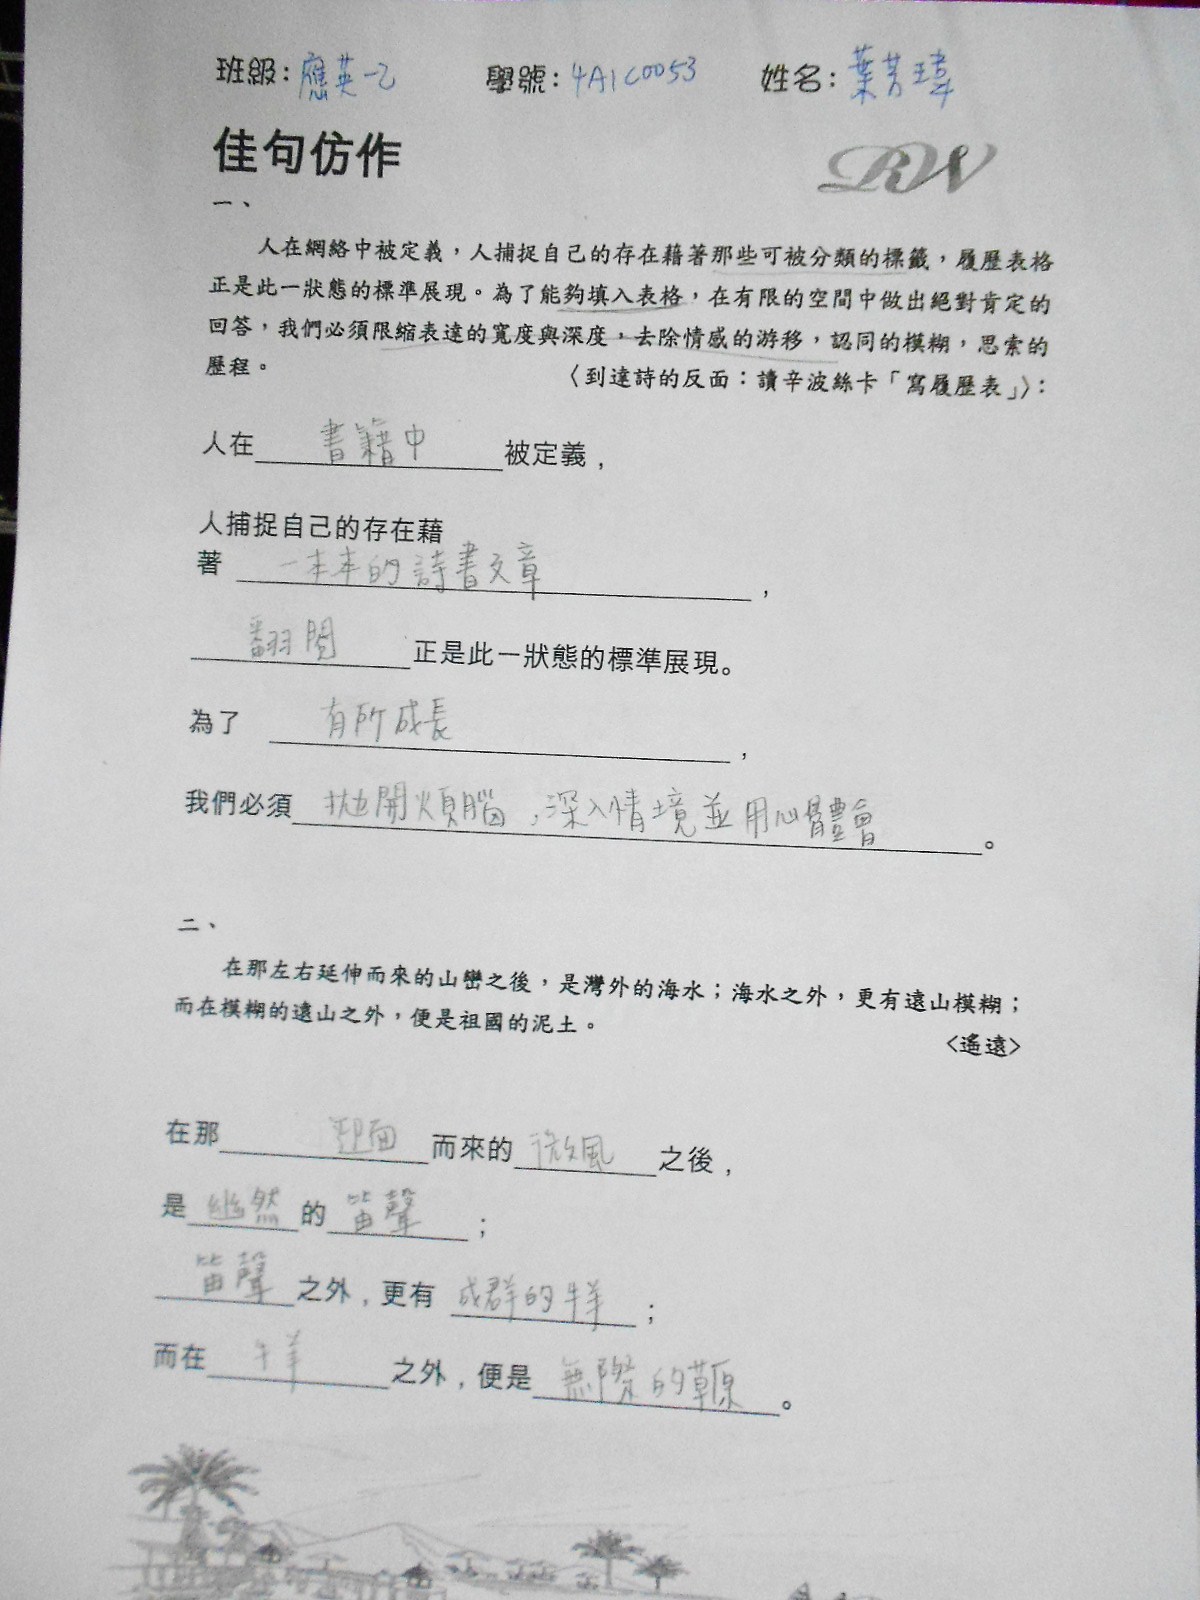 班級：應英一乙 學號：4A1C0053 姓名：葉芳瑋
佳句仿作
RW
一、
人在網絡中被定義，人捕捉自己的存在藉著那些可被分類的標籤，履歷表格
正是此一狀態的標準展現。為了能夠填入表格，在有限的空間中做出絕對肯定的
回答，我們必須限縮表達的寬度與深度，去除情感的游移，認同的模糊，思索的
歷程。 〈到達詩的反面：讀辛波絲卡「寫履歷表」〉：
人在 書籍中 被定義，
人捕捉自己的存在藉
著 一本本的詩書文章 ，
翻閱 正是此一狀態的標準展現。
為了 有所成長 ，
我們必須 拋開煩腦，深入情境並用心體會 。
二、
在那左右延伸而來的山巒之後，是灣外的海水；海水之外，更有遠山模糊；
而在模糊的遠山之外，便是祖國的泥土。
<遙遠>
在那 迎面 而來的 微風 之後，
是 幽然 的 笛聲 ；
笛聲 之外，更有 成群的牛羊 ；
而在 牛羊 之外，便是 無際的草原 。